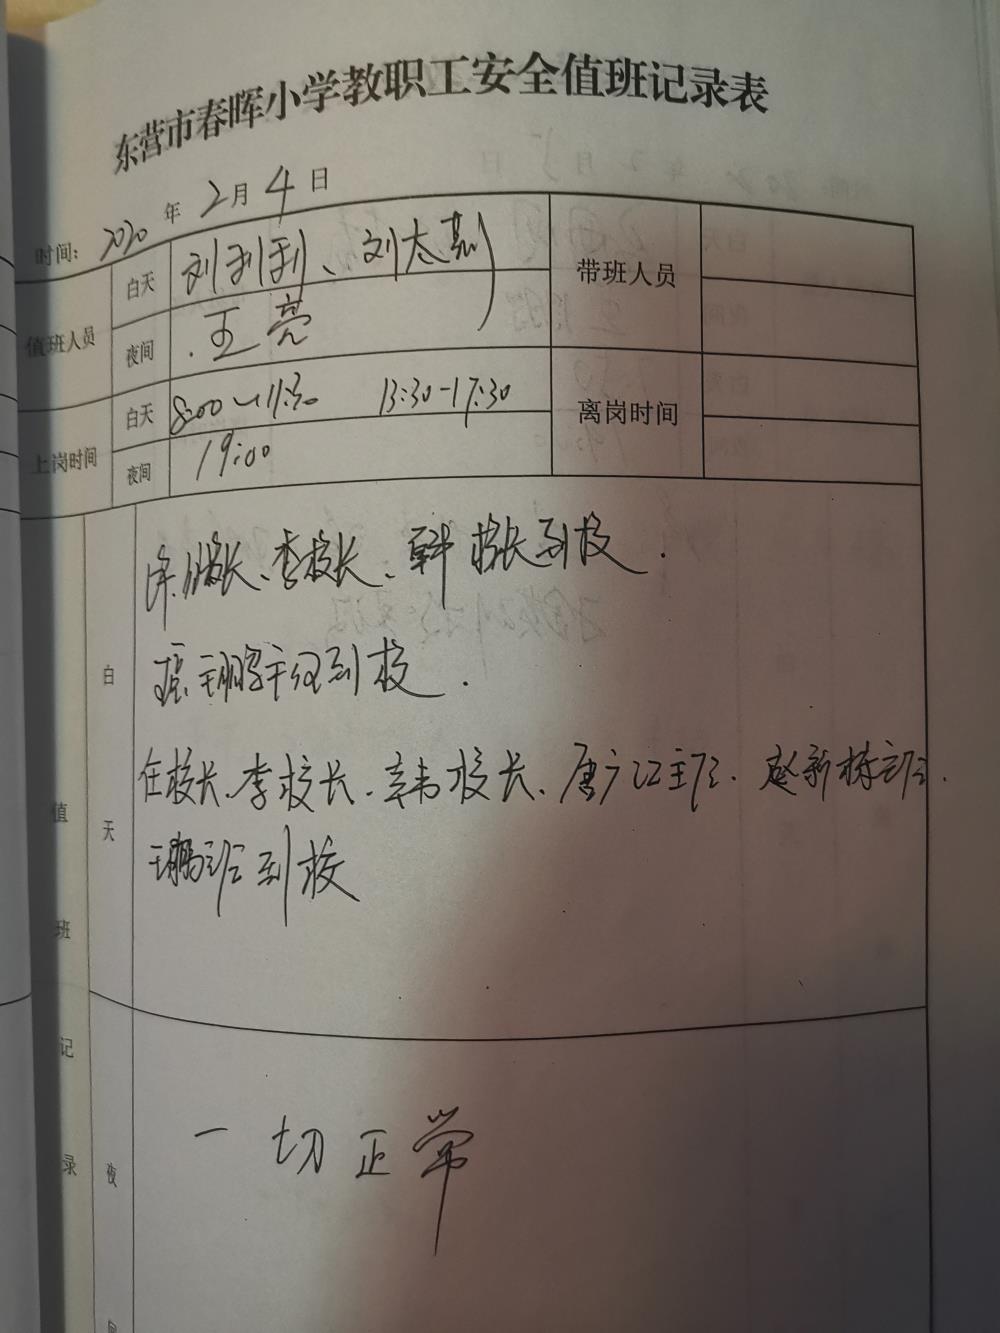 东营市春晖小学教职工安全值班记录表
时间: 2020 年 2 月 4 日
值班人员 白天 刘利利、刘太刚 带班人员
夜间 王亮
上岗时间 白天 8:00~11:30 13:30-17:30 离岗时间
夜间 19:00
值班记录
白天
校长、李校长、韩校长到校.
到校.
任校长、李校长、韩校长、唐广江主任、赵新栋主任、
王鹏主任到校
夜间
一切正常